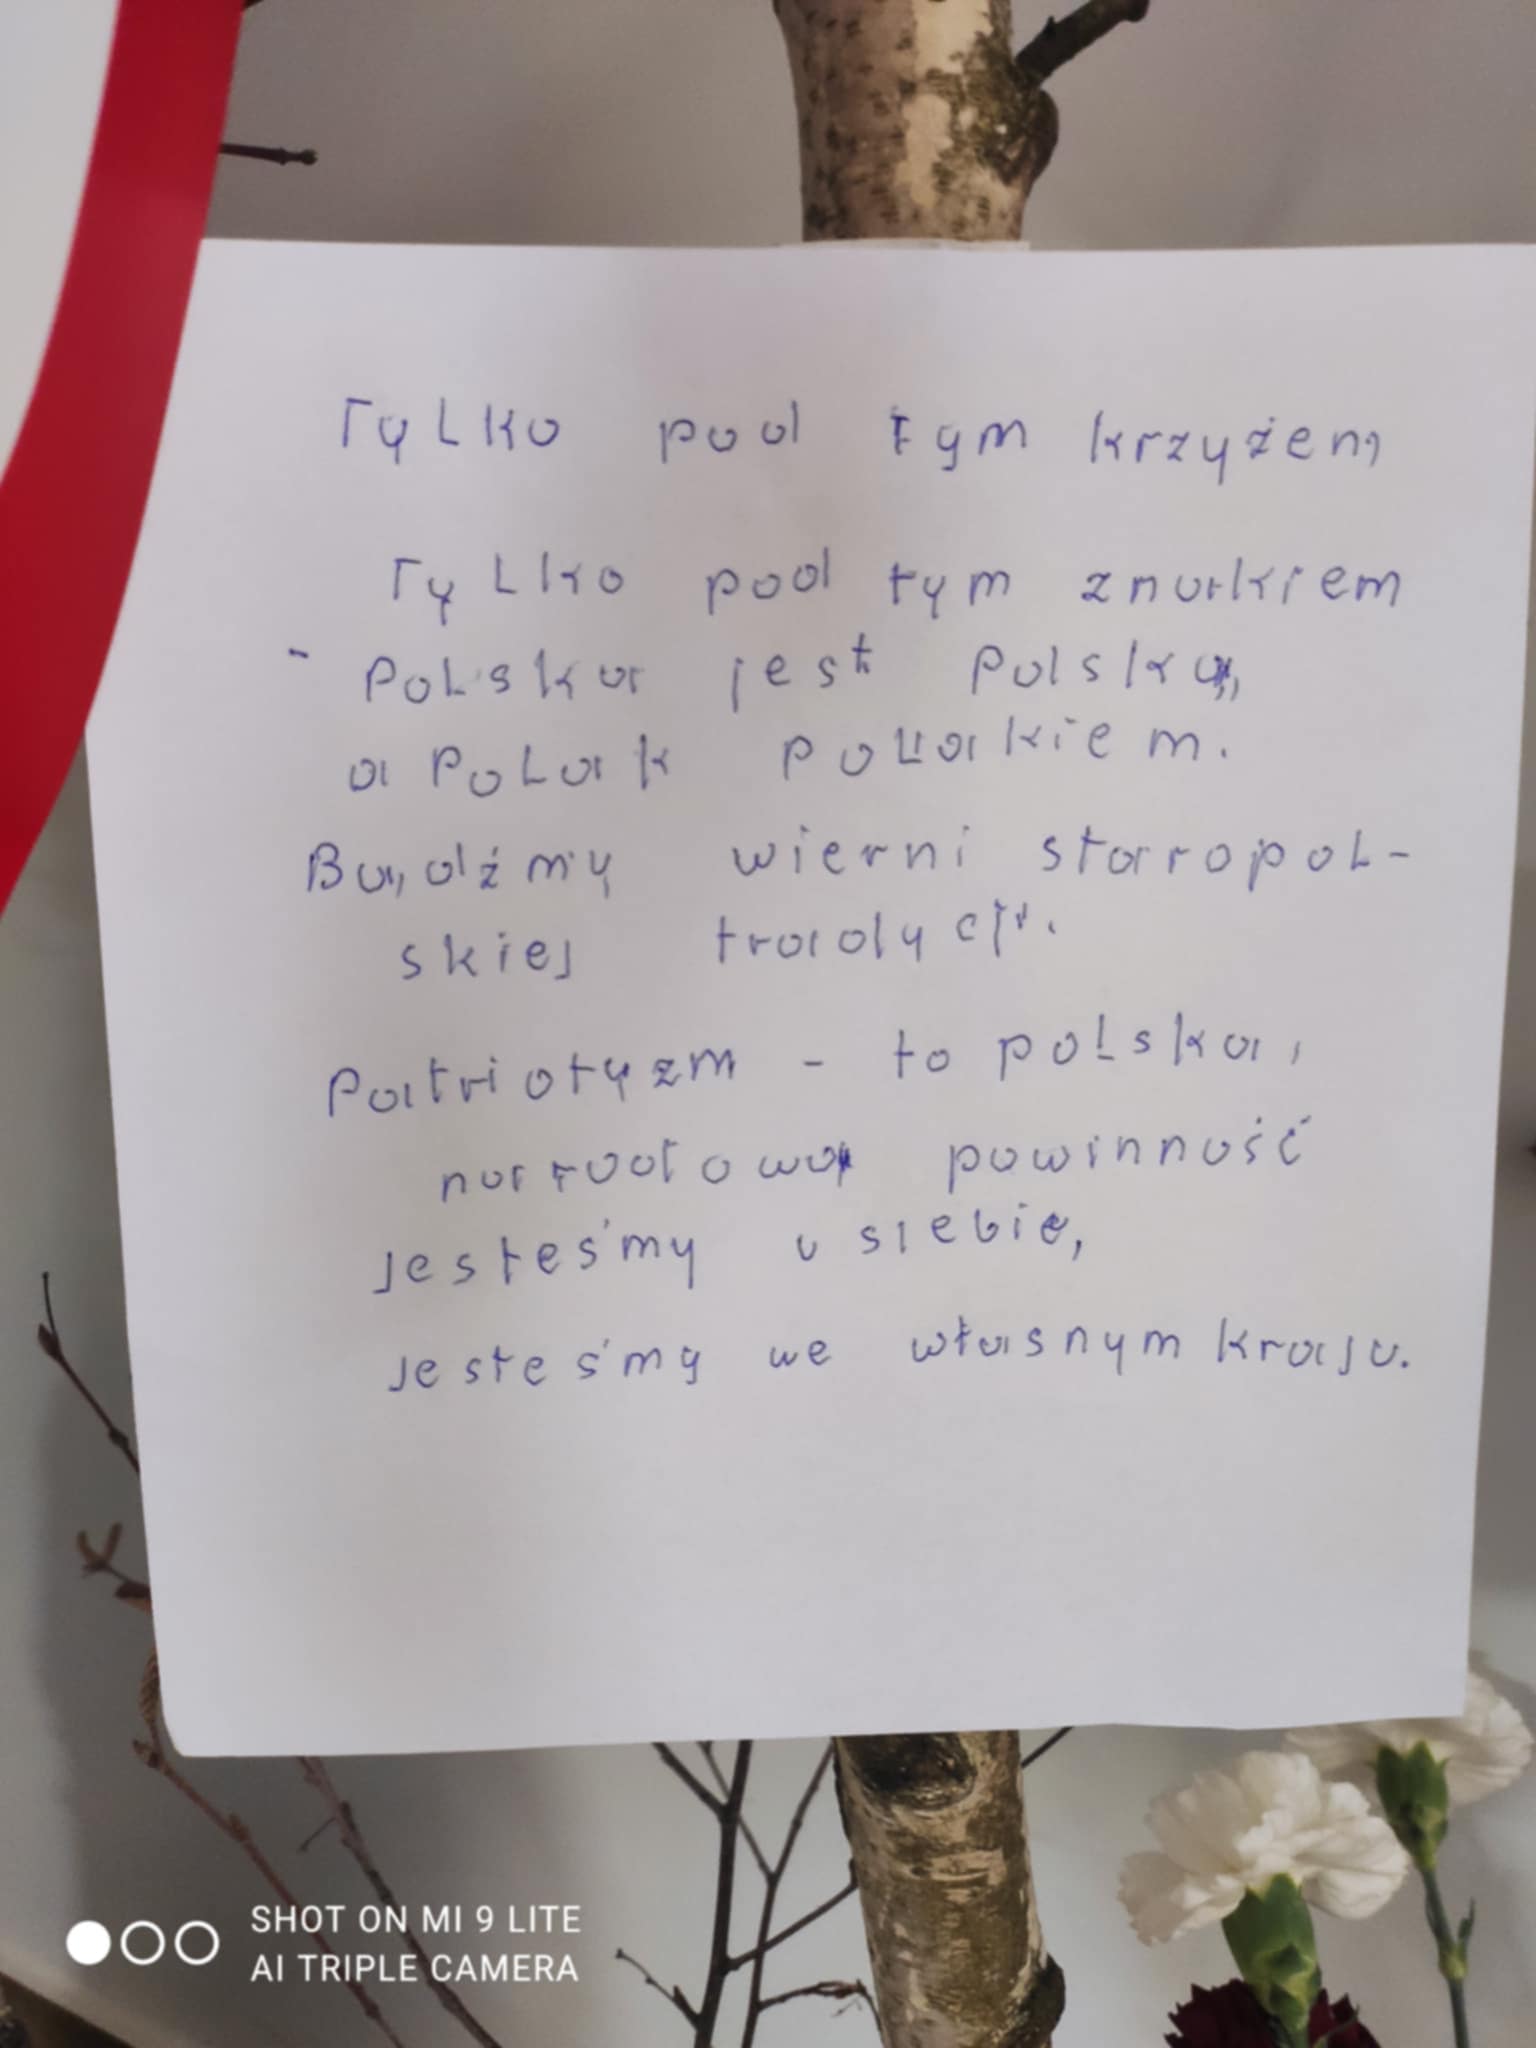 Tylko pod tym krzyżem,
Tylko pod tym znakiem
- Polska jest Polską,
a Polak Polakiem.
Bądźmy wierni staropol-
skiej tradycji.
Patriotyzm - to polska,
narodowa powinność
Jesteśmy u siebie,
Jesteśmy we własnym kraju.
SHOT ON MI 9 LITE
AI TRIPLE CAMERA